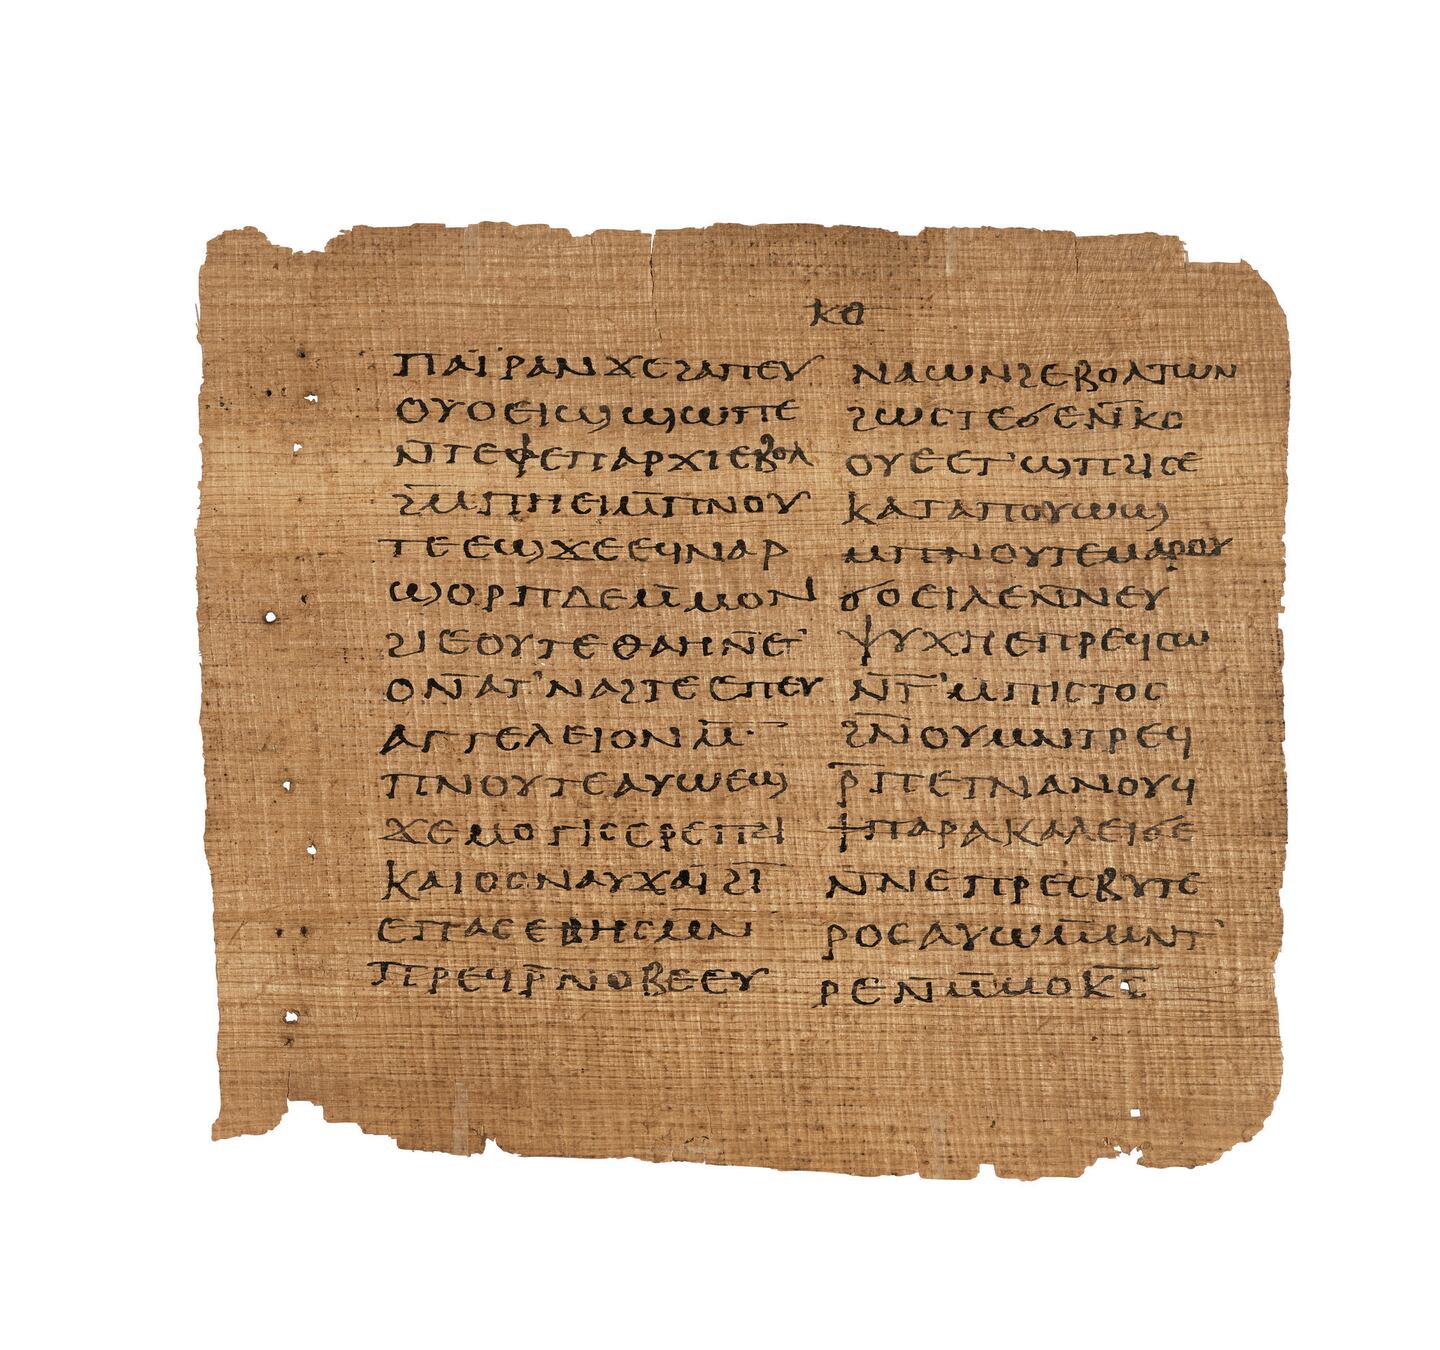 ⲕⲑ
ⲡⲁⲓ̈ⲣⲁⲛϫⲉϩⲁⲡⲉⲩ
ⲟⲩⲟⲉⲓϣϣⲱⲡⲉ
ⲛ̄ⲧⲉϥⲉⲡⲁⲣⲭⲓⲉⲃⲟⲗ
ϩⲙ̄ⲡⲏⲉⲓⲙ̄ⲡⲛⲟⲩ
ⲧⲉⲉϣϫⲉⲉϥⲛⲁⲣ
ϣⲟⲣⲡⲇⲉⲙ̄ⲙⲟⲛ
ϩⲓⲉⲟⲩⲧⲉⲑⲁⲏⲛ̄ⲛⲉⲧ
ⲟⲛ̄ⲁⲧʼⲛⲁϩⲧⲉⲉⲡⲉⲩ
ⲁⲅⲅⲉⲗⲉⲓⲟⲛⲙ̄
ⲡⲛⲟⲩⲧⲉⲁⲩⲱⲉϣ
ϫⲉⲙⲟⲅⲓⲥⲉⲣⲉⲡⲇⲓ
ⲕⲁⲓⲟⲥⲛⲁⲩϫⲁⲓ̈ϩⲓ̈
ⲉⲡⲁⲥⲉⲃⲏⲥⲙⲛ̄
ⲡⲣⲉϥⲣ̄ⲛⲟⲃⲉⲉⲩ
ⲛⲁⲱⲛϩⲉⲃⲟⲗⲧⲱⲛ
ϩⲱⲥⲧⲉϭⲉⲛ̄ⲕⲟ
ⲟⲩⲉⲉⲧʼϣⲡϩⲓⲥⲉ
ⲕⲁⲧⲁⲡⲟⲩⲱϣ
ⲙ̄ⲡⲛⲟⲩⲧⲉⲙⲁⲣⲟⲩ
ϭⲟⲉⲓⲗⲉⲛ̄ⲛⲉⲩ
ⲯⲩⲭⲏⲉⲡⲣⲉϥⲥⲱ
ⲛ̄ⲧʼⲙ̄ⲡⲓⲥⲧⲟⲥ
ϩⲛ̄ⲟⲩⲙⲛ̄ⲧⲣⲉϥ
ⲣ̄ⲡⲉⲧⲛⲁⲛⲟⲩϥ
ϯⲡⲁⲣⲁⲕⲁⲗⲉⲓϭⲉ
ⲛ̄ⲛⲉⲡⲣⲉⲥⲃⲩⲧⲉ
ⲣⲟⲥⲁⲩⲱⲙ̄ⲙⲛⲧ
ⲣⲉⲛ̄ⲙ̄ⲙⲟⲕϩ̄